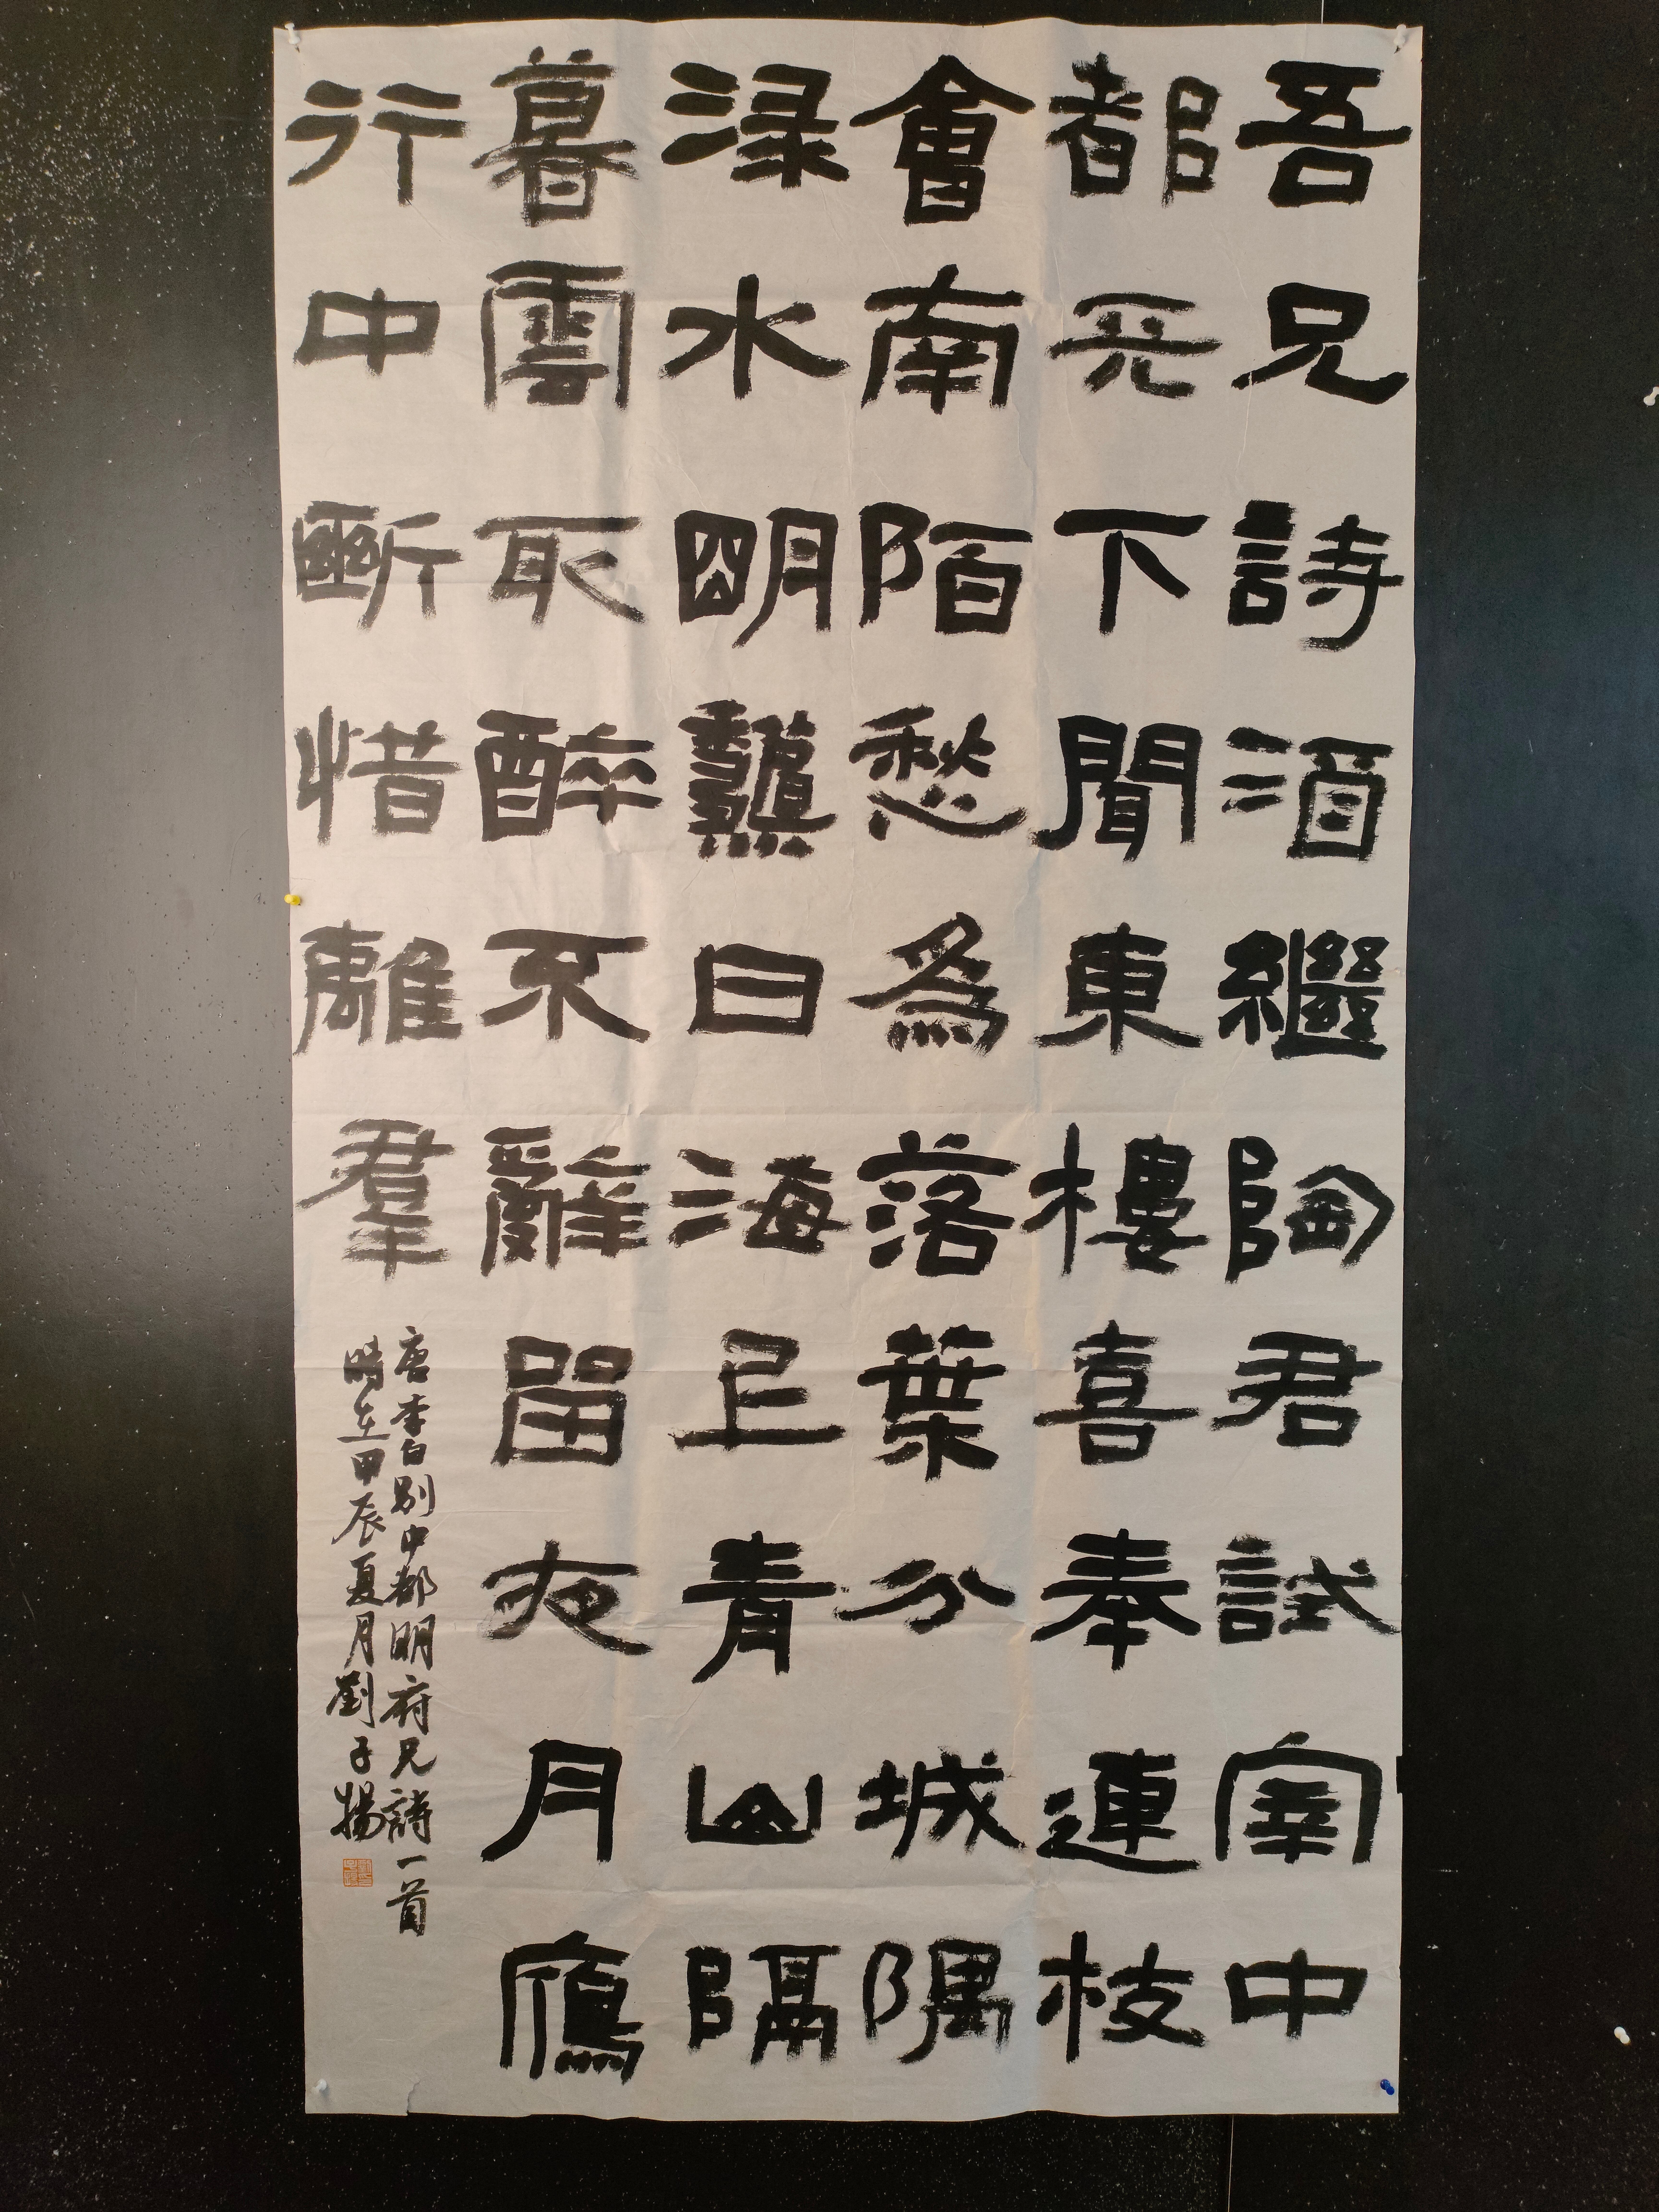 吾兄詩酒繼陶君試宰中
都天下聞東樓喜奉連枝
會南陌愁為落葉分城隅
淥水明龝日海上青山隔
暮雲取醉不辭留夜月鴈
行中斷惜離羣
唐李白別中都明府兄詩一首
時在甲辰夏月劉子揚